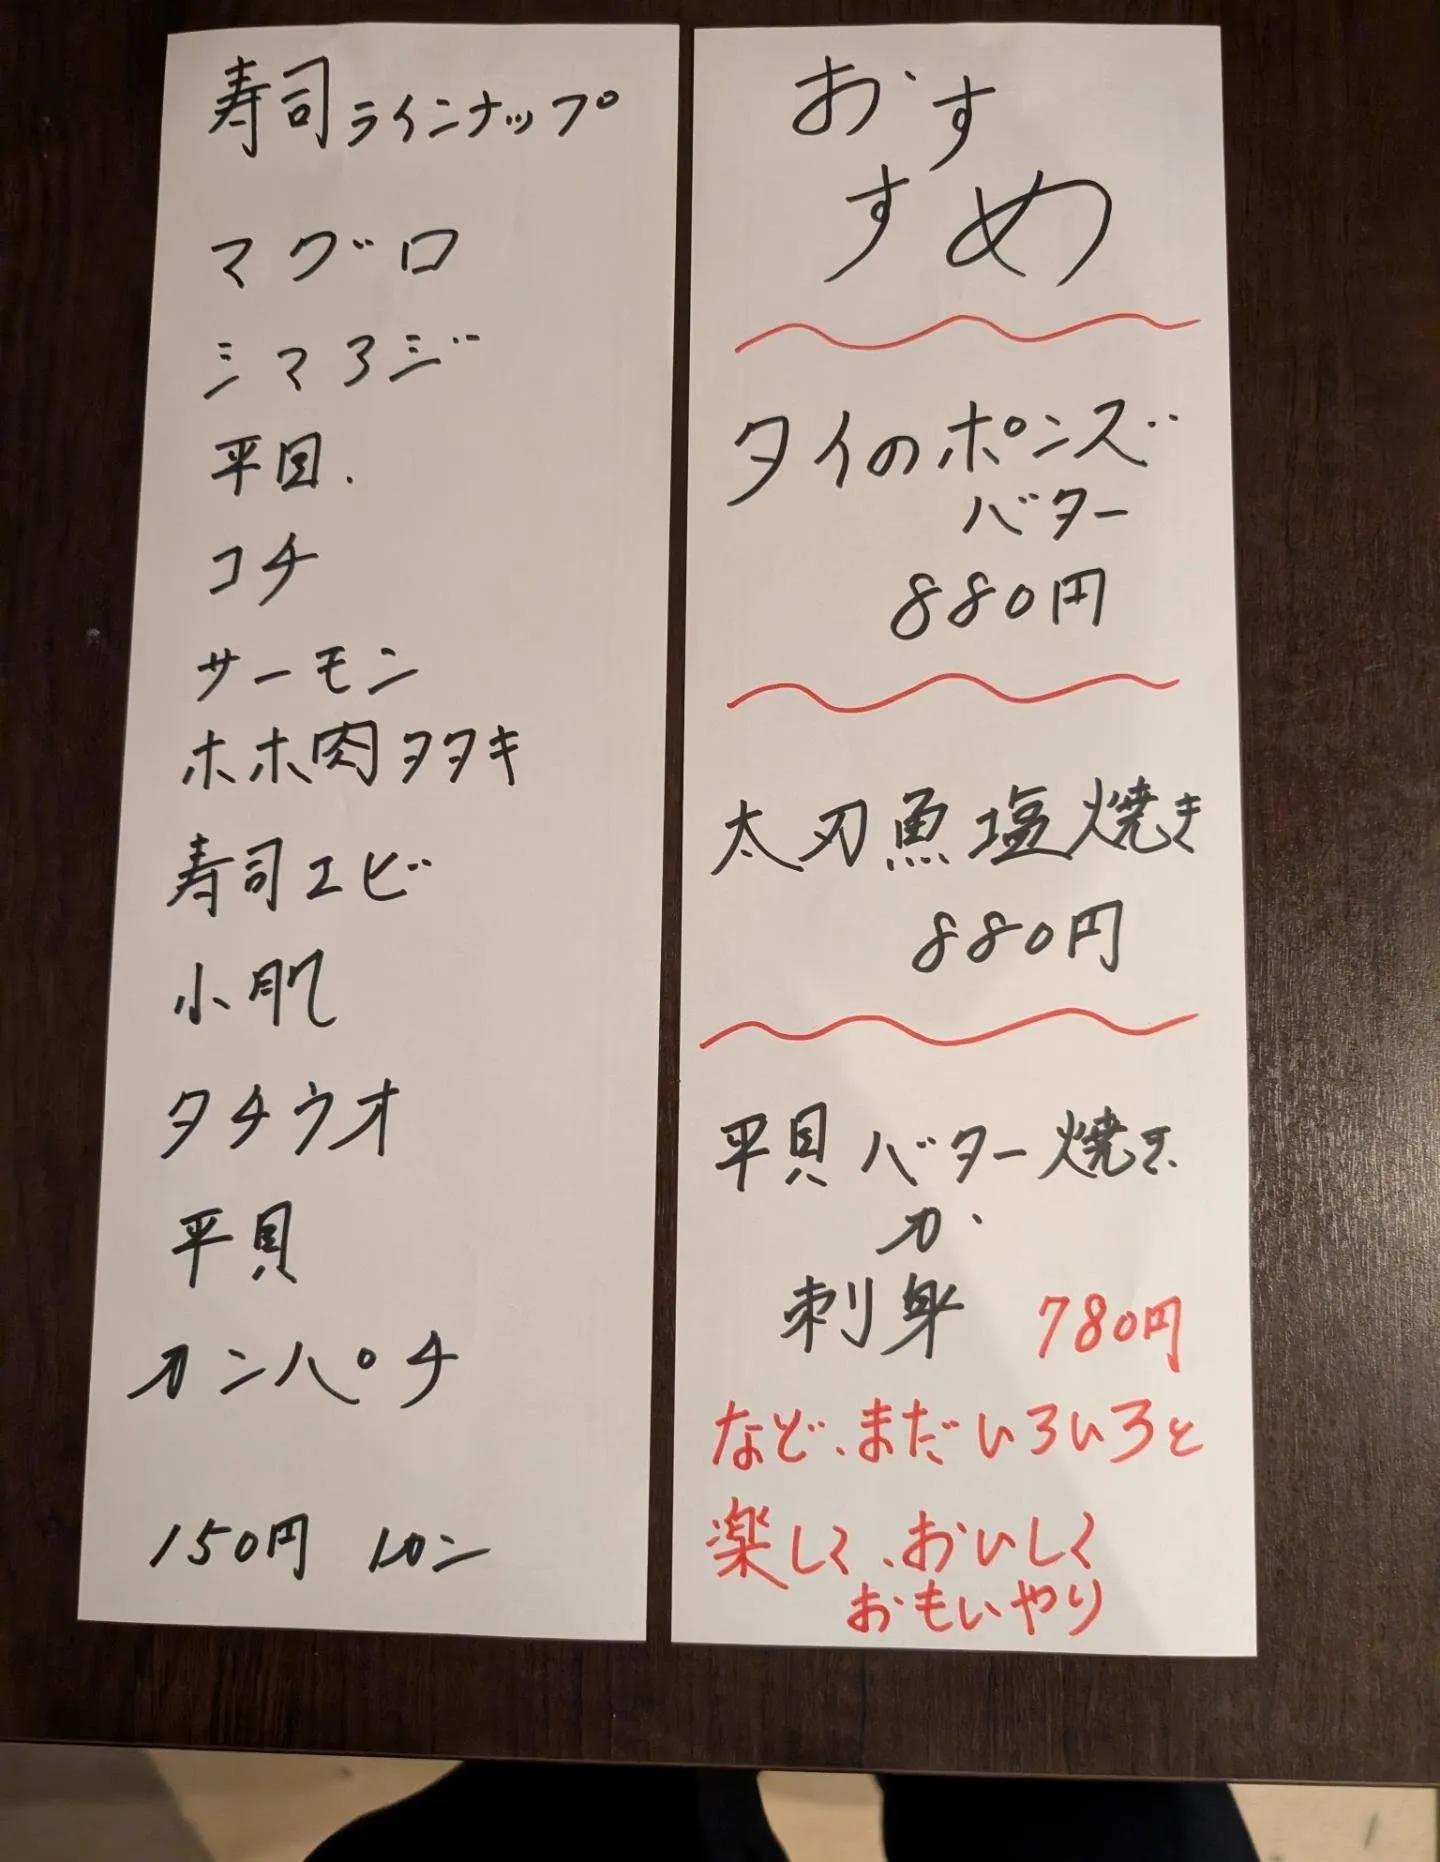 寿司ラインナップ
マグロ
シマアジ
平目.
コチ
サーモン
ホホ肉タタキ
寿司エビ
小肌
タチウオ
平貝
カンパチ
150円
おす
すめ
タイのポンズ
バター
880円
太刀魚塩焼き
880円
平貝バター焼き
か
刺身 780円
など、まだいろいろと
楽しく、おいしく
おもいやり